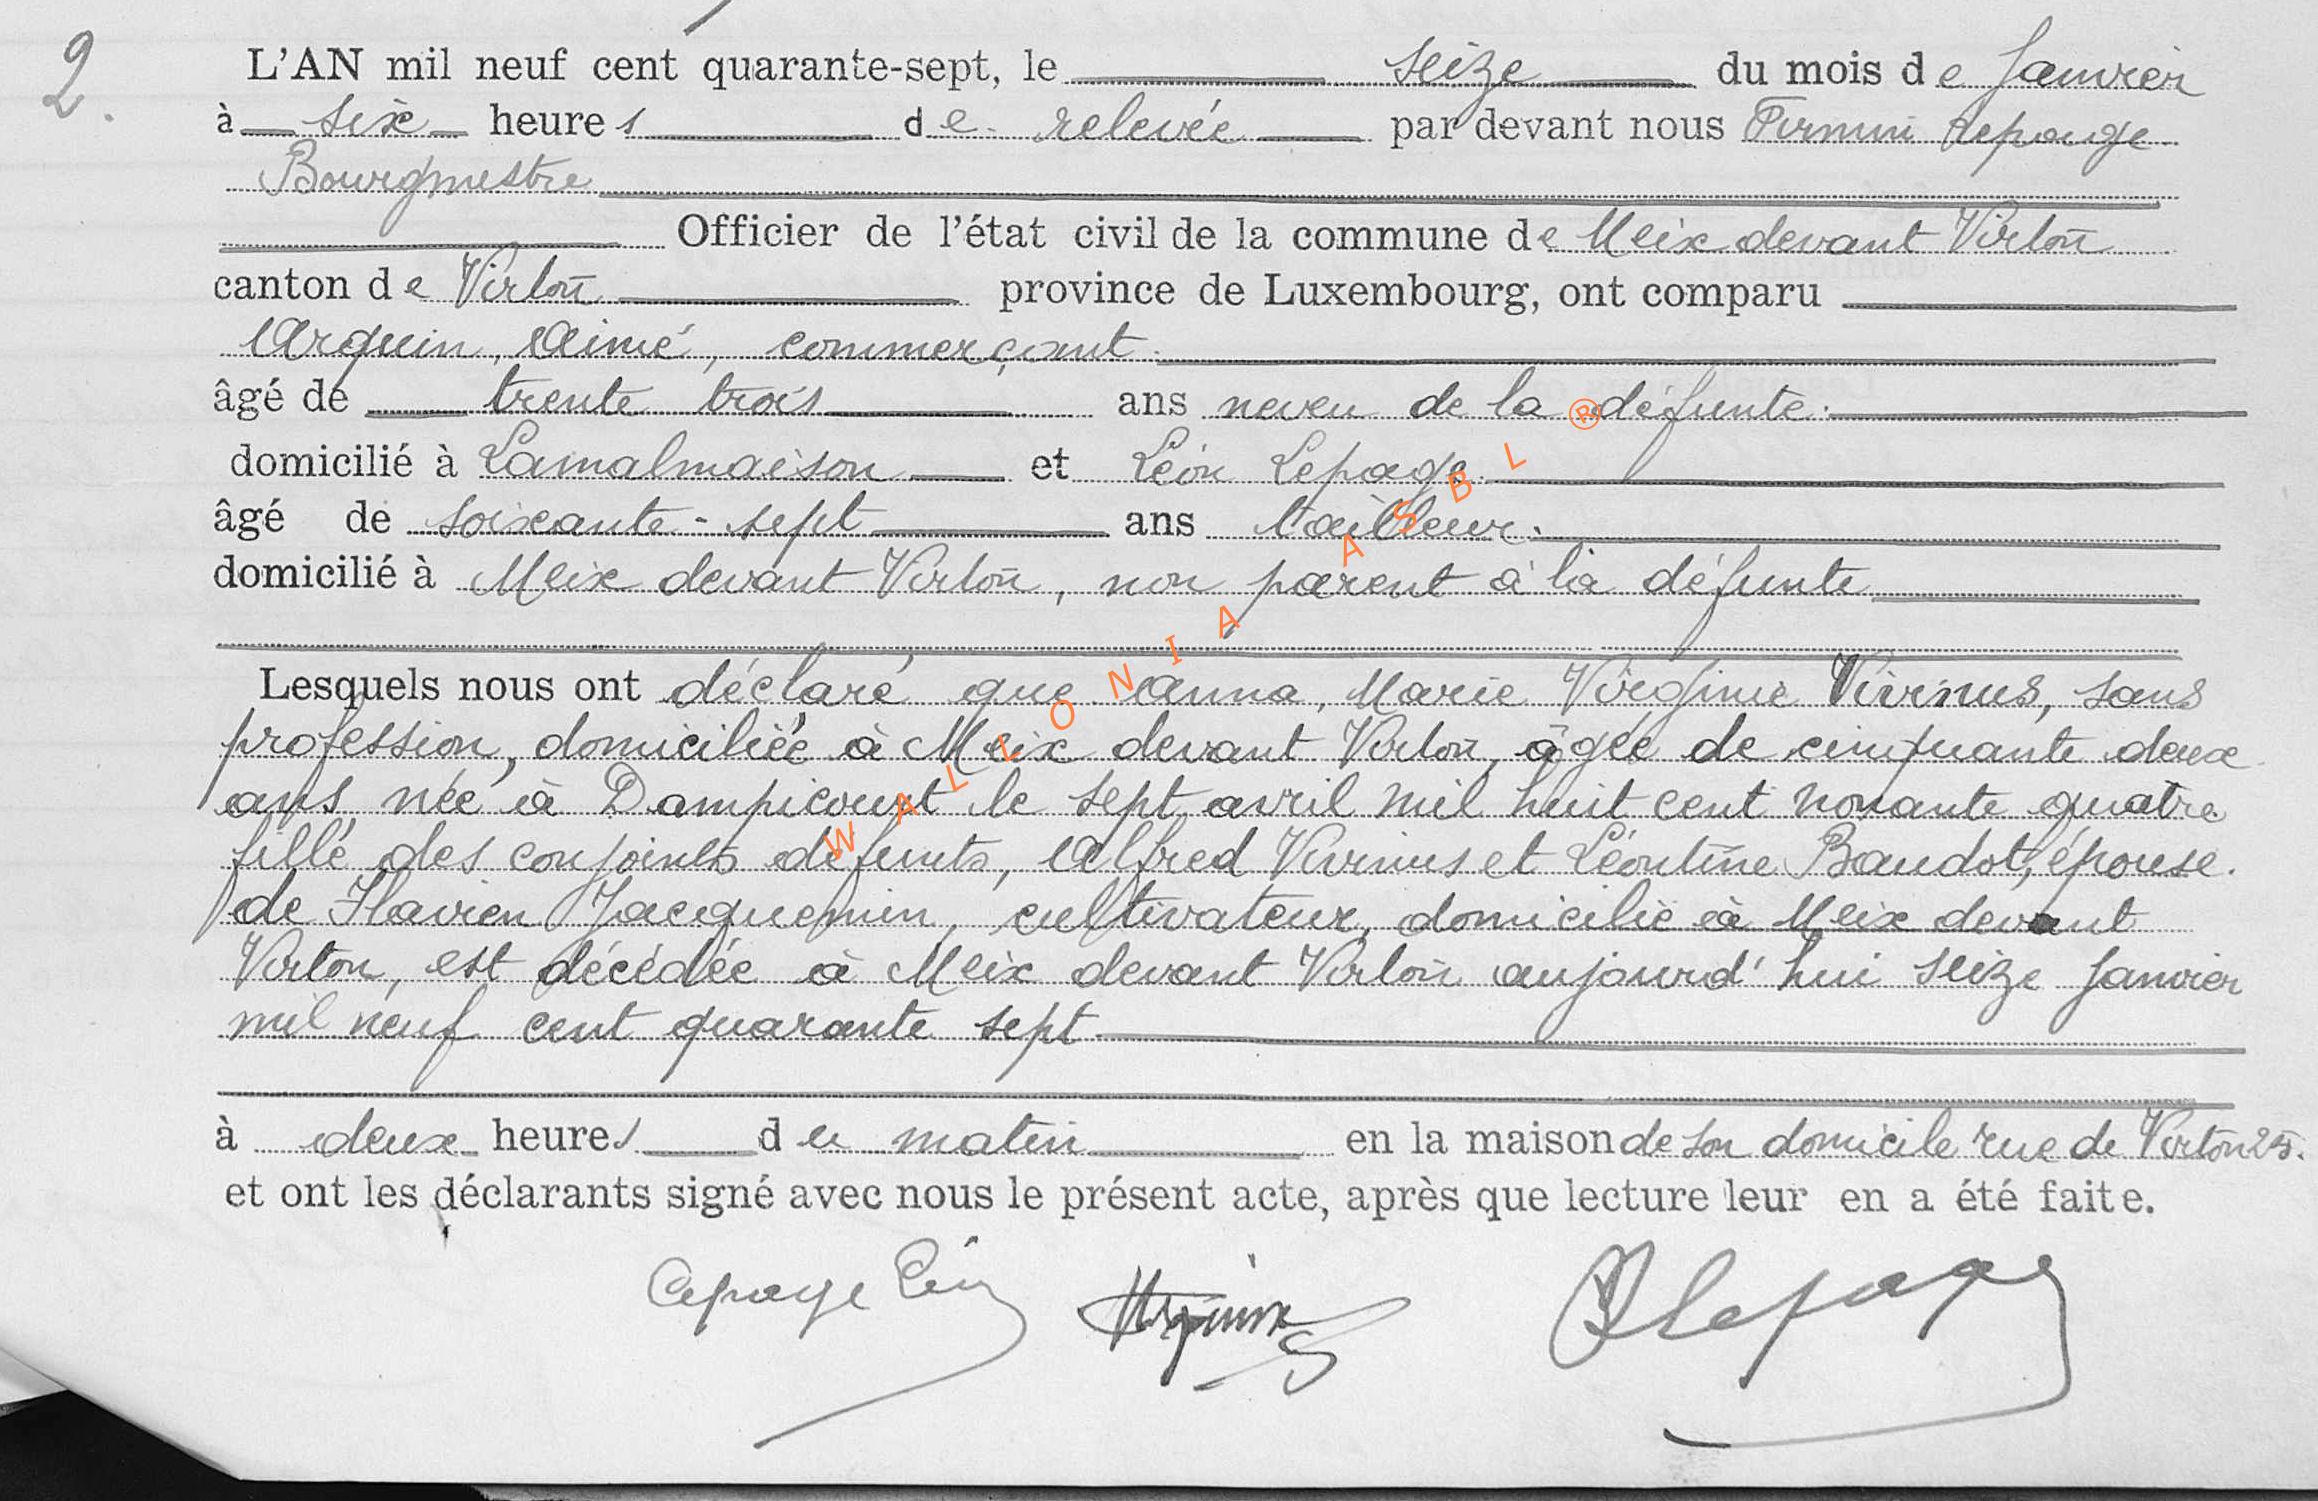 2.
L'AN mil neuf cent quarante-sept, le seize du mois de Janvier
à six heures de relevée par devant nous Firmin Lepage
Bourgmestre
Officier de l'état civil de la commune de Meix devant Virton
canton de Virton province de Luxembourg, ont comparu
Arquin, Aimé, commerçant.
âgé de trente trois ans neveu de la défunte.
domicilié à Lamalmaison et Léon Lepage.
âgé de soixante-sept ans tailleur.
domicilié à Meix devant Virton, non parent à la défunte
Lesquels nous ont déclaré que Anna, Marie Virginie Virnus, sans
profession, domiciliée à Meix devant Virton, âgée de cinquante deux
ans, née à Dampicourt le sept avril mil huit cent nonante quatre
fille des conjoints défunts, Alfred et Léontine Baudot, épouse.
de Flavien Jacquemin, cultivateur, domicilié à Meix devant
Virton, est décédée à Meix devant Virton aujourd'hui seize Janvier
mil neuf cent quarante sept
à deux heures du matin en la maison de son domicile rue de Virton 25.
et ont les déclarants signé avec nous le présent acte, après que lecture leur en a été faite.
Lepage Léon Arquin Lepage
WALLONIA ASBL ®